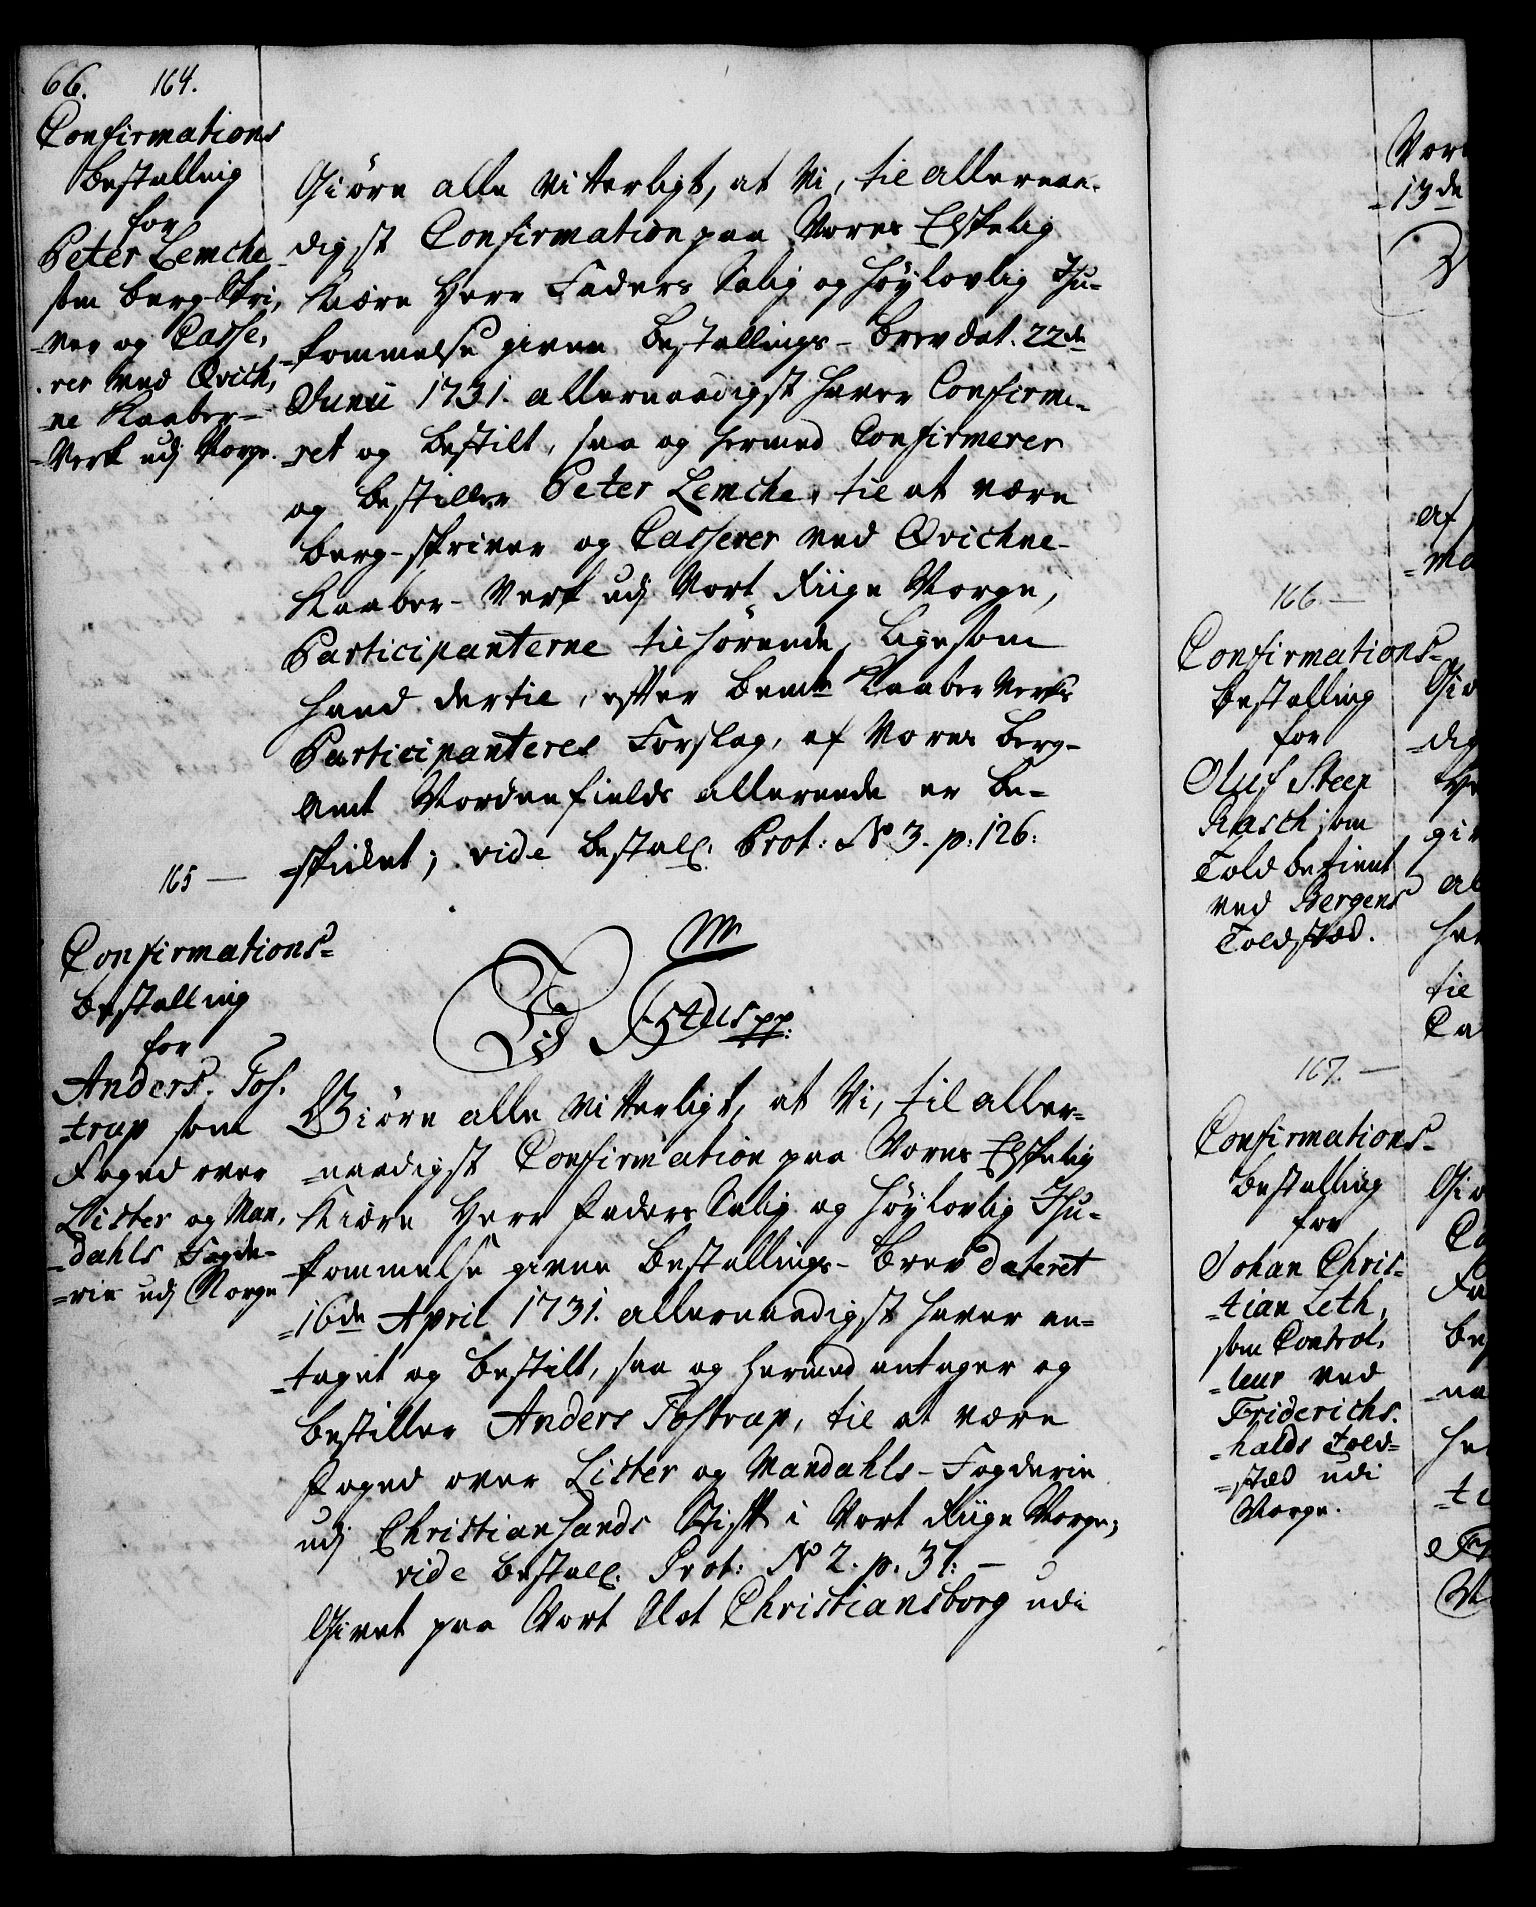 66. 164.
Confirmations
Bestalling
for
Peter Lemche
som Berg-Skri,
-ver og Casse,
-rer ved Qvich,
-ne Kaaber-
-Verk udj Norge.
Giøre alle Vitterligt, at Vi, til allernaa-
digst Confirmation paa Vores Elskelig
Kiære Herr Faders Salig og Høylovlig Ihu-
-kommelse givne Bestallings-Brev dat. 22de
Junii 1731. allernaadigst haver Confirme-
-ret og bestilt, saa og hermed Confirmerer
og bestiller Peter Lemche, til at være
Berg-skriver og Casserer ved Qvichne-
Kaaber-Verk udj Vort Riige Norge,
Participanterne tilhørende, ligesom
hand dertil, efter bemte Kaaber Verks
Participanteres Forslag, af Vores Berg-
Amt Nordenfields allerede er be-
-skikket; vide Bestall. Prot: No 3. p: 126:
165 —
Confirmations-
Bestalling
for
Anders Tos,
-trup som
Foged over
Lister og Man,
-dahls Fogde-
-rie udj Norge
Vi
Fr: 5tus pp:
Giøre alle Vitterligt, at Vi, til aller-
-naadigst Confirmation paa Vores Elskelig
Kiære Herr Faders Salig og Høylovlig Ihu-
-kommelse givne Bestallings-Brev dateret
-16de April 1731. allernaadigst haver an-
-taget og bestilt, saa og hermed antager og
bestiller Anders Tostrup, til at være
Foged over Lister og Mandahls-Fogderie
udj Christiansands Stift i Vort Riige Norge;
vide Bestall. Prot: No 2. p. 37: —
Givet paa Vort Slot Christiansborg udi
166 —
Confirmations-
Bestalling
for
Oluf Steen
Rasch som
Toldbetient
ved Bergens
Toldsted.
167. —
Confirmations-
Bestalling
for
Johan Chris-
-tian Leth,
som Control,
-leur ved
Friderichs-
-halds Told-
-sted udi
Norge.
13de
af
til